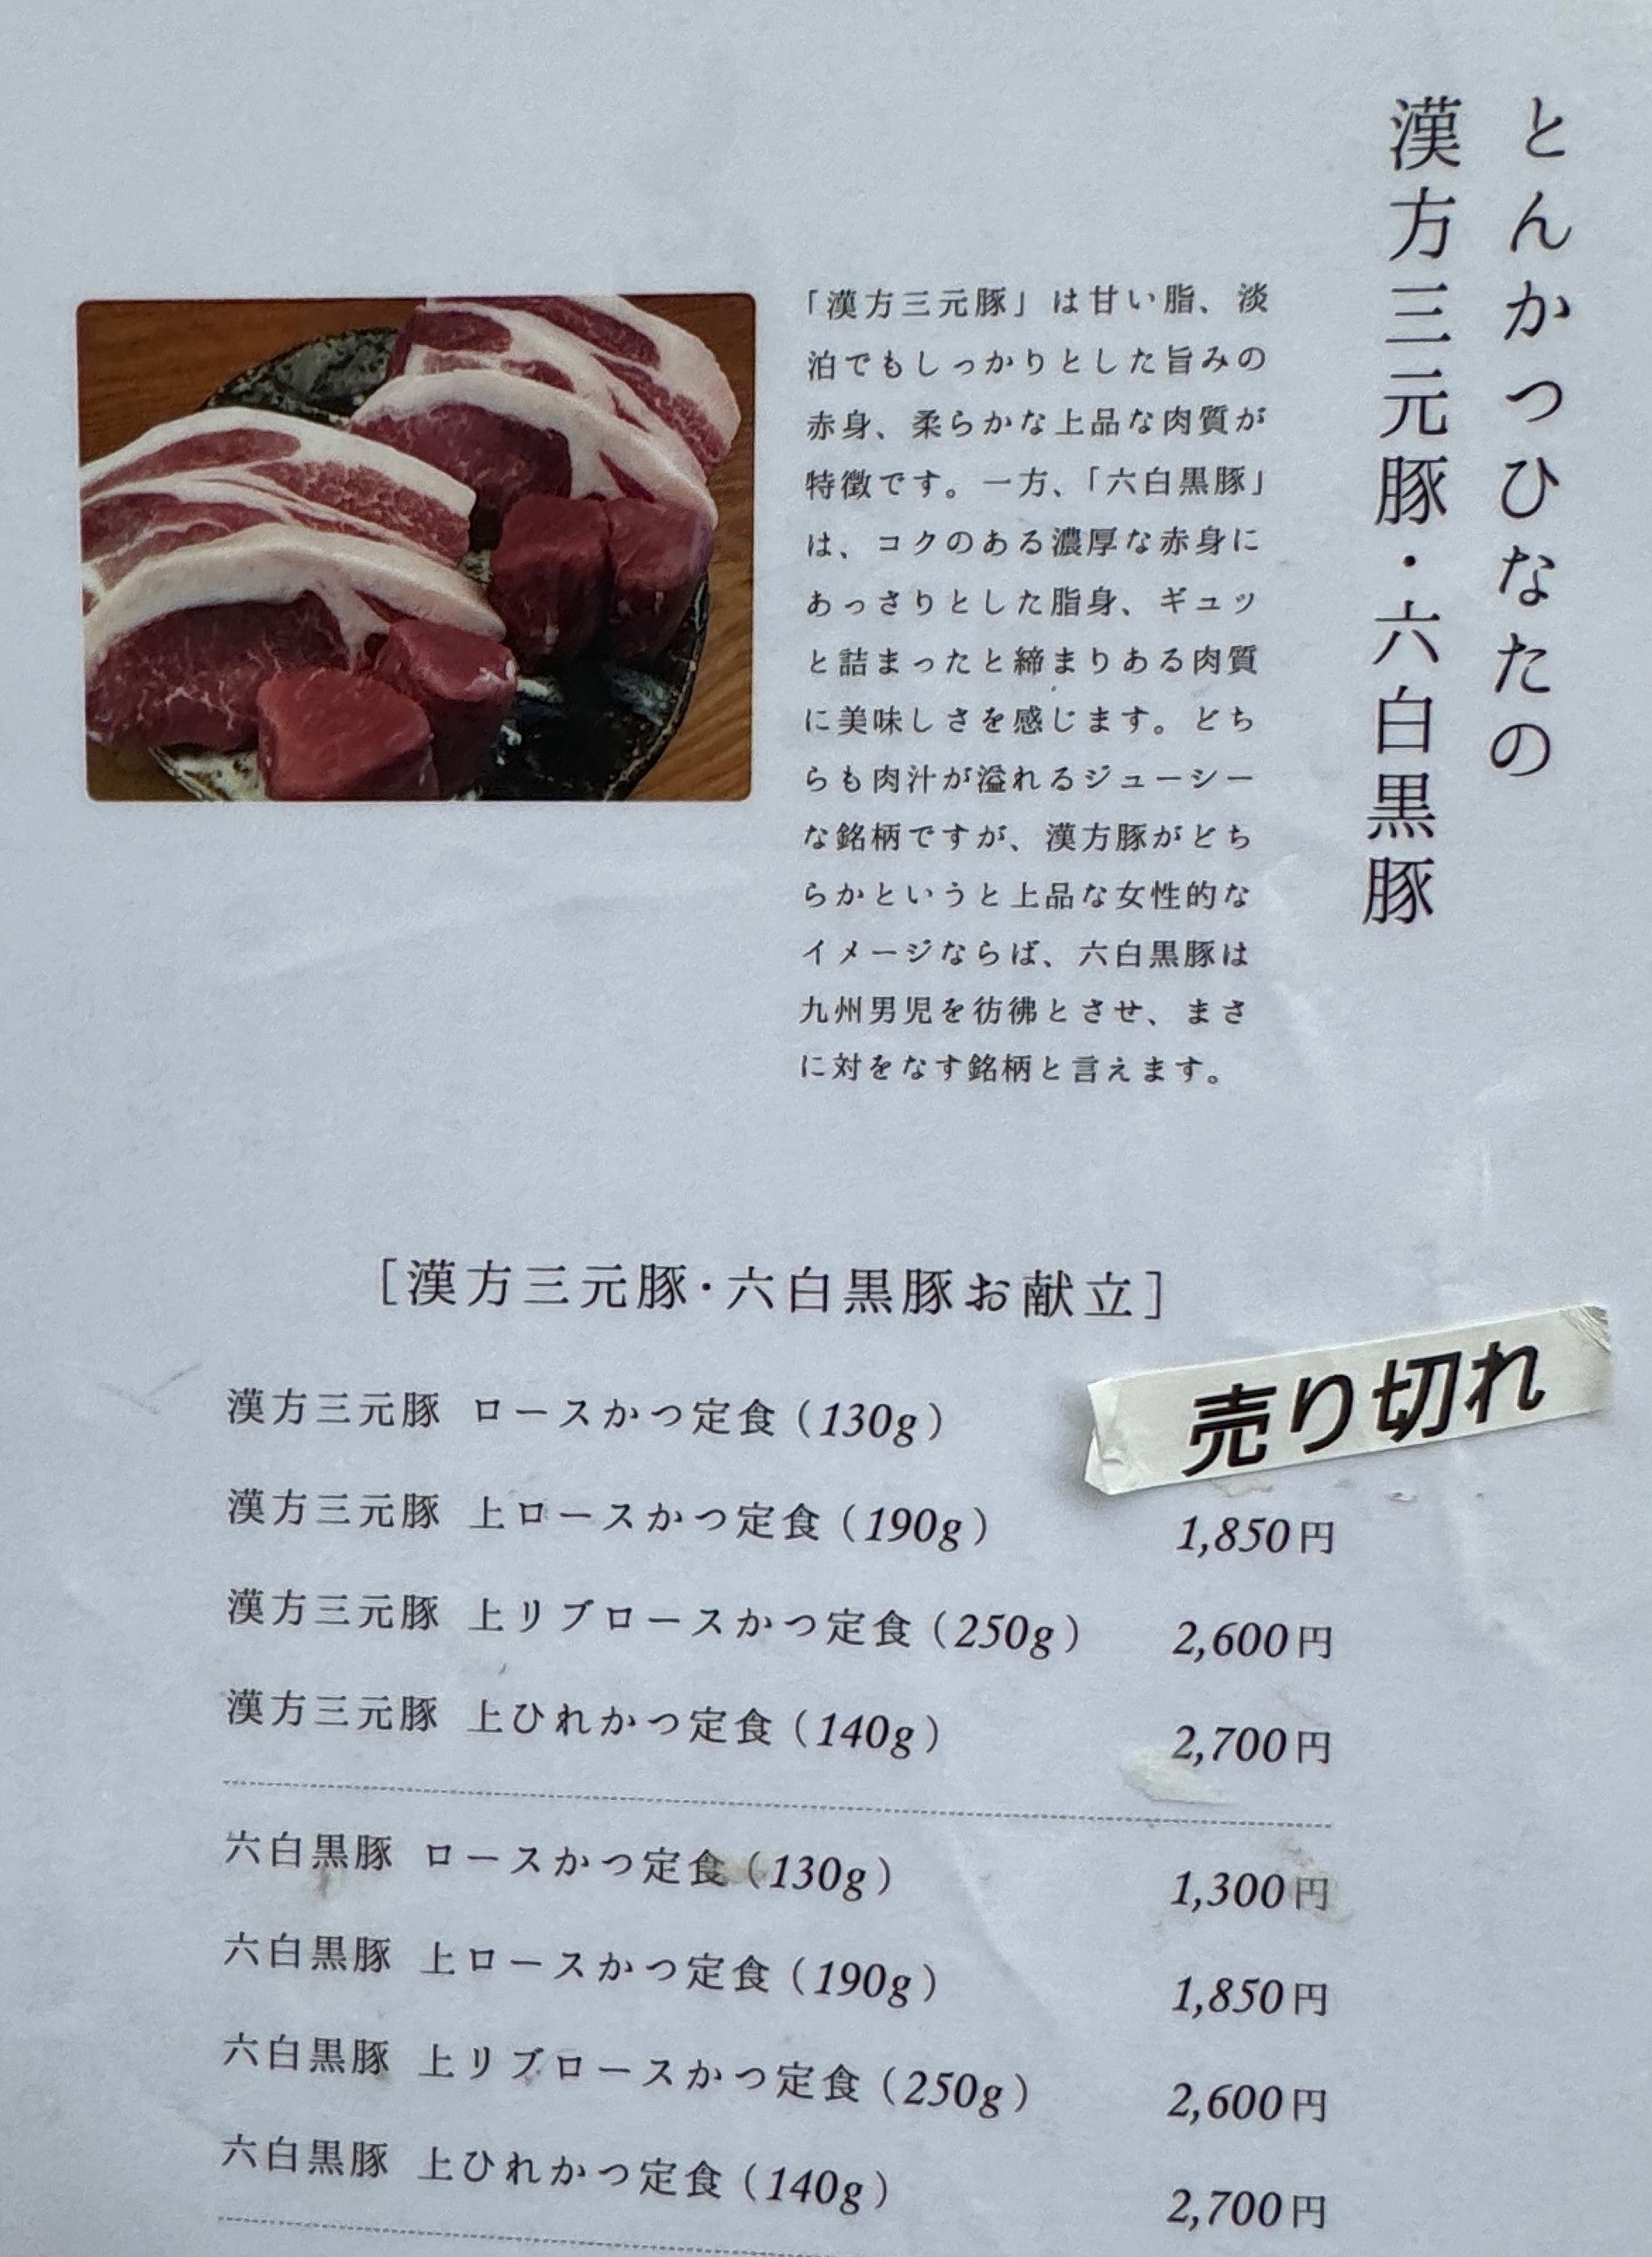 とんかつひなたの
漢方三元豚・六白黒豚
「漢方三元豚」は甘い脂、淡
泊でもしっかりとした旨みの
赤身、柔らかな上品な肉質が
特徴です。一方、「六白黒豚」
は、コクのある濃厚な赤身に
あっさりとした脂身、ギュッ
と詰まったと締まりある肉質
に美味しさを感じます。どち
らも肉汁が溢れるジューシー
な銘柄ですが、漢方豚がどち
らかというと上品な女性的な
イメージならば、六白黒豚は
九州男児を彷彿とさせ、まさ
に対をなす銘柄と言えます。
［漢方三元豚・六白黒豚お献立］
漢方三元豚 ロースかつ定食（130g） 売り切れ
漢方三元豚 上ロースかつ定食（190g） 1,850円
漢方三元豚 上リブロースかつ定食（250g） 2,600円
漢方三元豚 上ひれかつ定食（140g） 2,700円
六白黒豚 ロースかつ定食（130g） 1,300円
六白黒豚 上ロースかつ定食（190g） 1,850円
六白黒豚 上リブロースかつ定食（250g） 2,600円
六白黒豚 上ひれかつ定食（140g） 2,700円